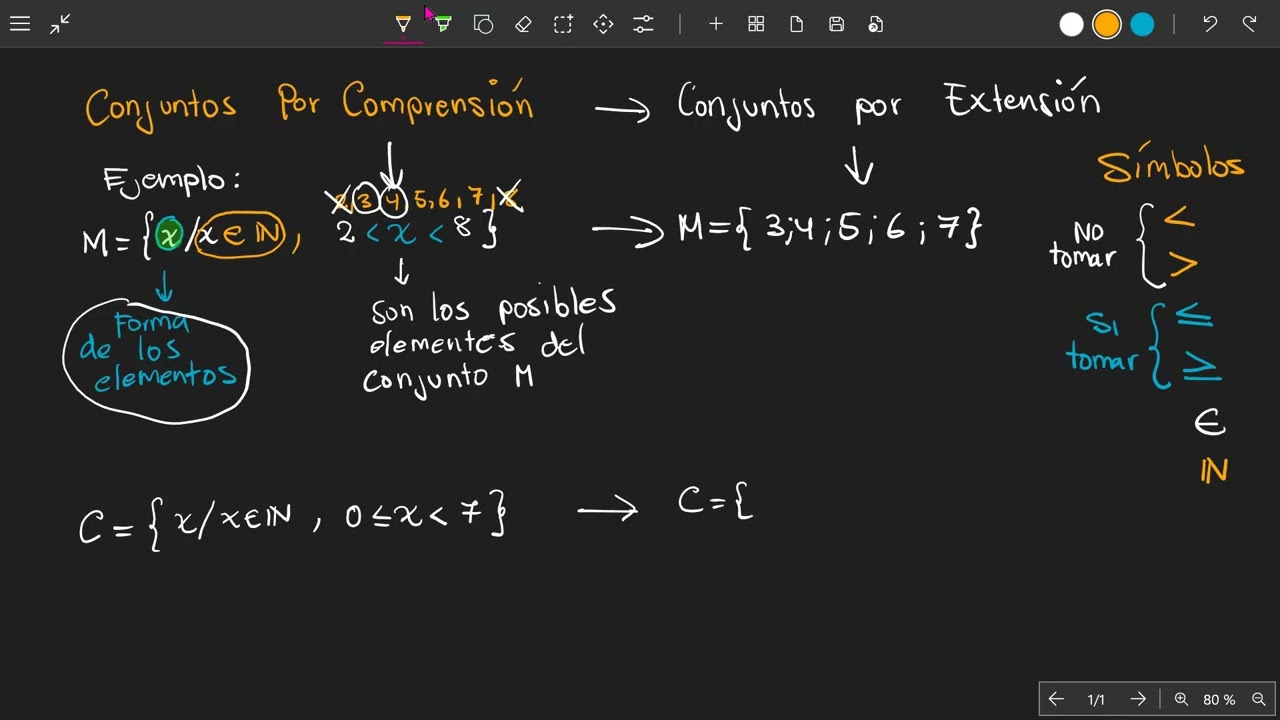 Conjuntos Por Comprensión → Conjuntos por Extensión
Símbolos
Ejemplo:
2, 3, 4, 5, 6, 7, 8
M = { x / x ∈ IN , 2 < x < 8 } → M = { 3; 4; 5; 6; 7 }
NO tomar { < >
son los posibles
elementos del
conjunto M
Forma
de los
elementos
SI tomar { ≤ ≥
∈
IN
C = { x / x ∈ IN , 0 ≤ x < 7 } → C = {
1/1
80 %